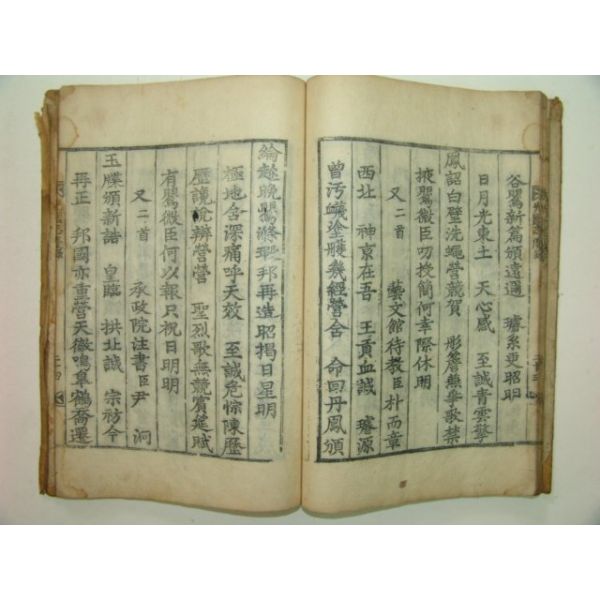 谷鸎新篇頒遠邇 璿系更昭明
日月光東土 天心感 至誠青雲擎
鳳詔白璧洗蠅營競賀 彤簷無爭歌禁
掖鸎微臣叨授簡何幸際休明
又二首 藝文館待教臣朴而章
西北 神京在吾 王貢血誠 璿源
曾汚衊塗幾經營舍 命回丹鳳頒
綸趁晩鸎滌瑕邦再造昭揭日星明
極地含深痛呼天效 至誠危悰陳歷
歷讒說辨營營 聖烈歌無競賓筵賦
有鸎微臣何以報只祝日明明
又二首 承政院注書臣尹 泂
玉牒頒新誥 皇臨 拱北誠 宗祊今
再正 邦國亦重營天徹鳴臯鶴喬遷